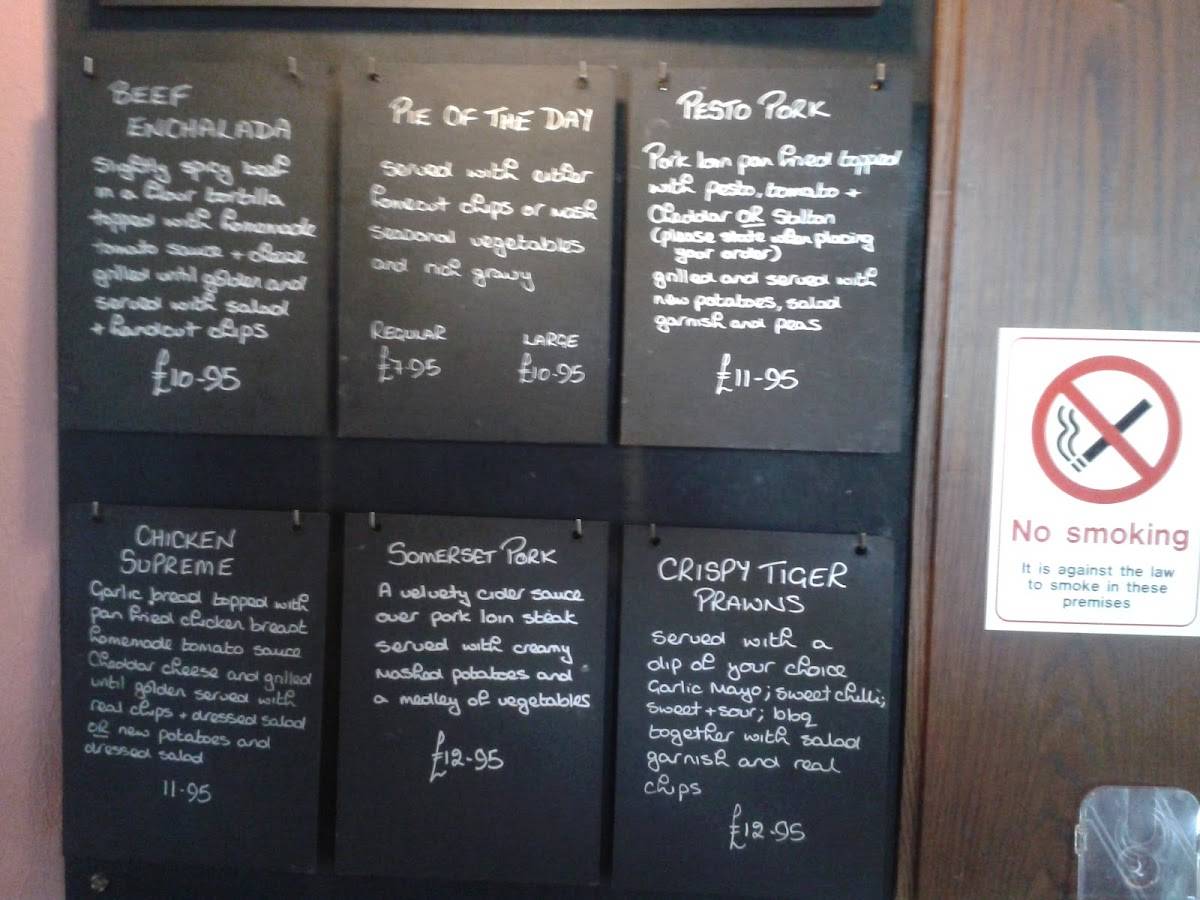 BEEF
ENCHALADA
slightly spicy beef
in a flour tortilla
topped with homemade
tomato sauce + cheese
grilled until golden and
served with salad
+ handcut chips
£10-95
PIE OF THE DAY
served with either
homecut chips or mash
seasonal vegetables
and rich gravy
REGULAR LARGE
£7-95 £10-95
PESTO PORK
Pork loin pan fried topped
with pesto, tomato +
Cheddar OR Stilton
(please state when placing
your order)
grilled and served with
new potatoes, salad
garnish and peas
£11-95
CHICKEN
SUPREME
Garlic bread topped with
pan fried chicken breast
homemade tomato sauce
Cheddar cheese and grilled
until golden served with
real chips + dressed salad
OR new potatoes and
dressed salad
11-95
SOMERSET PORK
A velvety cider sauce
over pork loin steak
served with creamy
mashed potatoes and
a medley of vegetables
£12-95
CRISPY TIGER
PRAWNS
served with a
dip of your choice
Garlic Mayo; sweet chilli;
sweet + sour; bbq
together with salad
garnish and real
chips
£12-95
No smoking
It is against the law
to smoke in these
premises